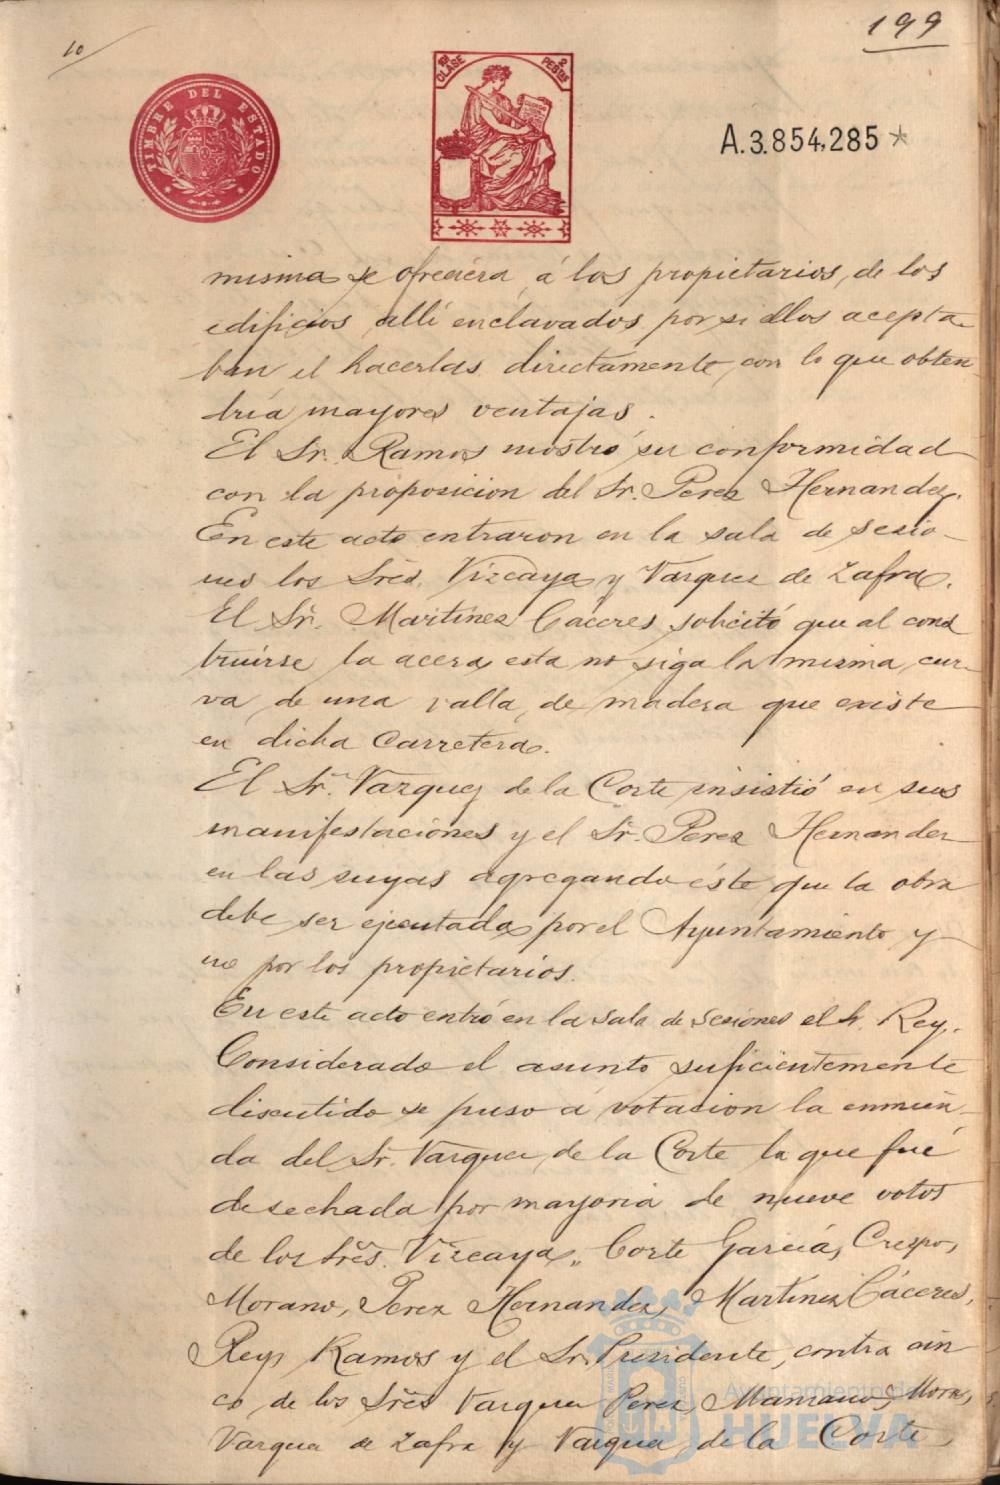 10
199
TIMBRE DEL ESTADO
10ª CLASE
2 PESTAS
A.3.854,285 *
misma se ofreciera, á los propietarios, de los
edificios allí enclavados por si ellos acepta-
ban el hacerlas directamente, con lo que obten-
dría mayores ventajas.
El Sr. Ramos mostró su conformidad
con la proposicion del Sr. Perez Hernandez.
En este acto entraron en la sala de sesio-
nes los Sres. Vizcaya y Vazquez de Zafra.
El Sr. Martinez Cáceres solicitó que al cons
truirse la acera esta no siga la misma cur-
va de una valla de madera que existe
en dicha Carretera.
El Sr. Vazquez de la Corte insistió en sus
manifestaciones y el Sr. Perez Hernandez
en las suyas agregando éste que la obra
debe ser ejecutada por el Ayuntamiento y
no por los propietarios.
En este acto entró en la sala de sesiones el Sr. Rey.
Considerado el asunto suficientemente
discutido se puso á votacion la enmien-
da del Sr. Vazquez de la Corte la que fué
desechada por mayoria de nueve votos
de los Sres. Vizcaya, Corte Garciá, Crespo,
Morano, Perez Hernandez, Martinez Cáceres,
Rey, Ramos y el Sr. Presidente, contra cin
co de los Sres Vazquez Perez, Manzano, Mora,
Vazquez de Zafra y Vazquez de la Corte,
Ayuntamiento de
HUELVA